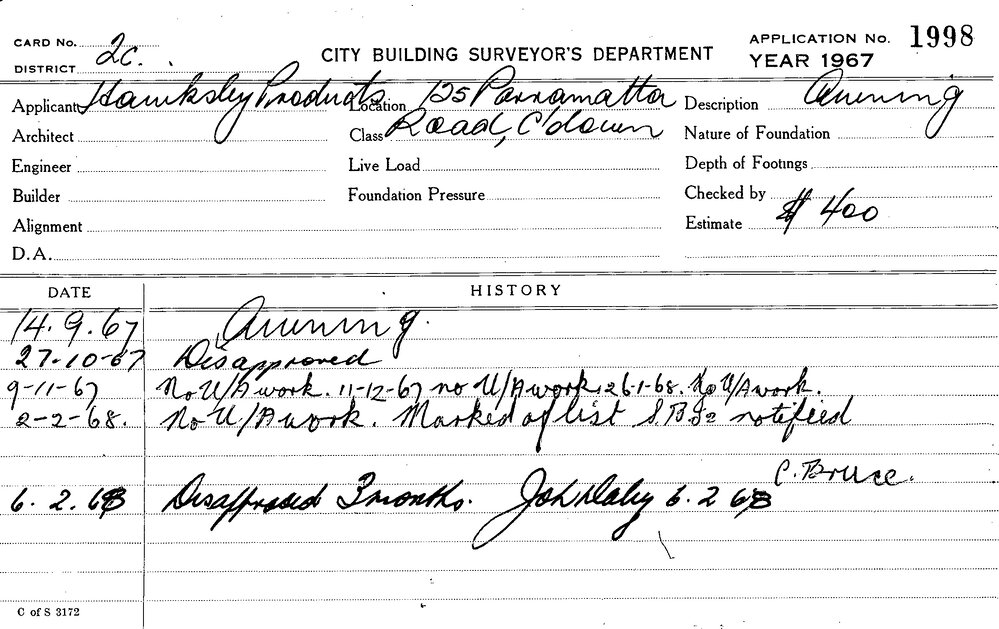 CARD No. 2c.
CITY BUILDING SURVEYOR'S DEPARTMENT
APPLICATION No. 1998
DISTRICT
YEAR 1967
Applicant Hawksley Products Location 125 Parramatta Description Awning
Architect Class Road, C'down Nature of Foundation
Engineer Live Load Depth of Footings
Builder Foundation Pressure Checked by
Alignment Estimate $ 400
D.A.
DATE HISTORY
14.9.67 Awning.
27-10-67 Disapproved
9-11-67 No U/A work. 11-12-67 no U/A work. 26-1-68. No U/A work.
2-2-68. No U/A work. Marked of list notified
C. Bruce.
6.2.68 Disapproved 3 months. 6.2 68
C of S 3172